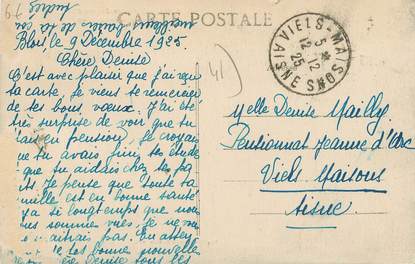 CARTE POSTALE
Blois le 9 Décembre 1925
Chère Denise
C'est avec plaisir que j'ai reçu
ta carte, je viens te remercier
de tes bons vœux. J'ai été
très surprise de voir que tu
en pension, je croyais
que tu avais fini tes étude
que tu aidais chez tes pa
ts. Je pense que toute ta
mille est en bonne santé
y a si longtemps que nous
nous sommes vues, je ne
pas. En atten
de tes bonne nouvelles
Denise tous les
meilleurs baisers de ta
41
VIELS-MAISONS
AISNE
5
12
25
Melle Denise Mailly
Pensionnat Jeanne d'Arc
Viels Maisons
Aisne